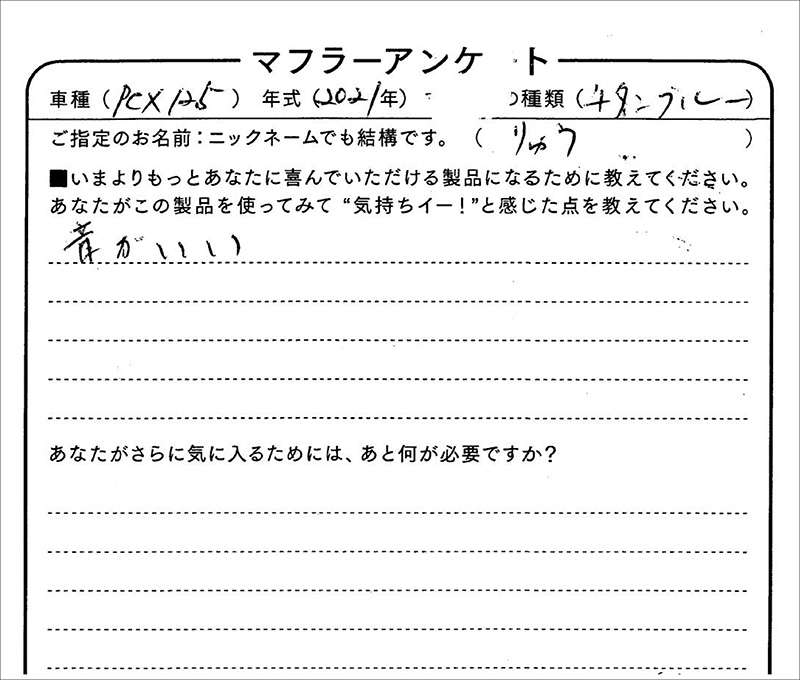 マフラーアンケ ト
車種（PCX125） 年式（2021年） 種類（チタンブルー）
ご指定のお名前：ニックネームでも結構です。（りゅう）
■いまよりもっとあなたに喜んでいただける製品になるために教えてください。
あなたがこの製品を使ってみて“気持ちイー！”と感じた点を教えてください。
音がいいい
あなたがさらに気に入るためには、あと何が必要ですか？